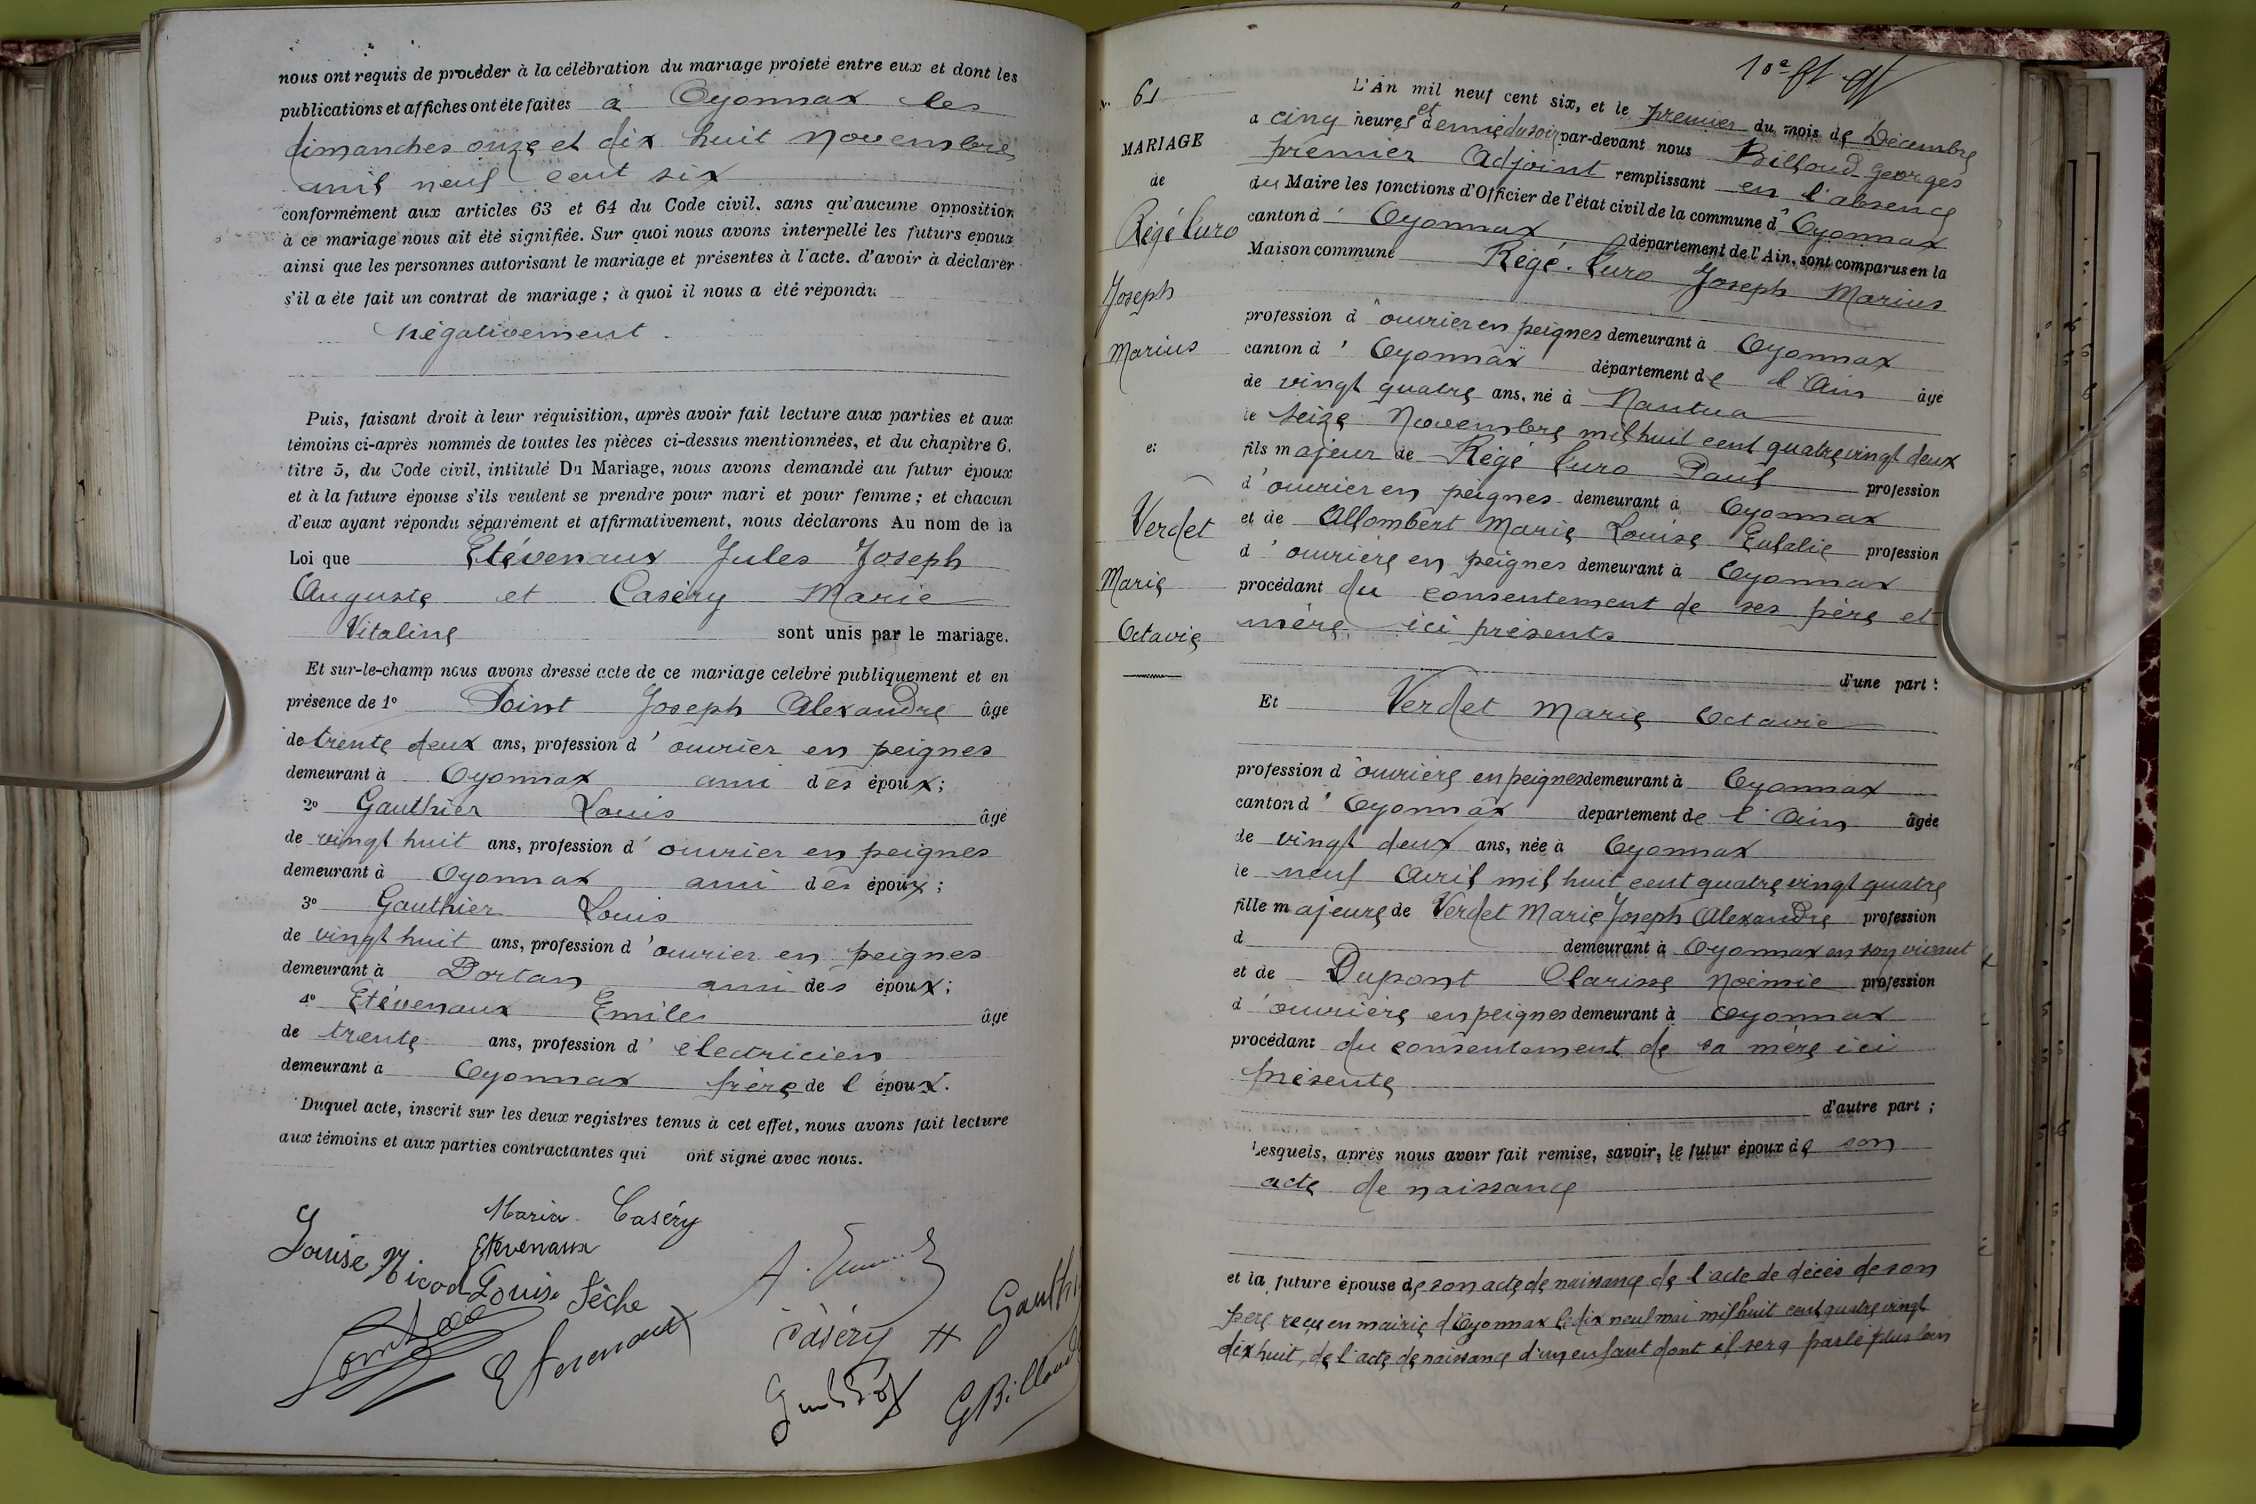 nous ont requis de procéder à la célébration du mariage projeté entre eux et dont les
publications et affiches ont été faites à Oyonnax les
dimanches onze et dix huit Novembre
mil neuf cent six
conformément aux articles 63 et 64 du Code civil, sans qu'aucune opposition
à ce mariage nous ait été signifiée. Sur quoi nous avons interpellé les futurs epoux
ainsi que les personnes autorisant le mariage et présentes à l'acte. d'avoir à déclarer
s'il a été fait un contrat de mariage ; à quoi il nous a été répondu
négativement.
Puis, faisant droit à leur réquisition, après avoir fait lecture aux parties et aux
témoins ci-après nommés de toutes les pièces ci-dessus mentionnées, et du chapitre 6.
titre 5, du Code civil, intitulé Du Mariage, nous avons demandé au futur époux
et à la future épouse s'ils veulent se prendre pour mari et pour femme ; et chacun
d'eux ayant répondu séparément et affirmativement, nous déclarons Au nom de la
Loi que Etévenaux Jules Joseph
Auguste et Caséry Marie
Vitaline sont unis par le mariage.
Et sur-le-champ nous avons dressé acte de ce mariage célébré publiquement et en
présence de 1o Point Joseph Alexandre âgé
de trente deux ans, profession d'ouvrier en peignes
demeurant à Oyonnax ami des époux ;
2o Gauthier Louis âgé
de vingt huit ans, profession d'ouvrier en peignes
demeurant à Oyonnax ami des époux ;
3o Gauthier Louis
de vingt huit ans, profession d'ouvrier en peignes
demeurant à Dortan ami des époux ;
4o Etévenaux Emile âgé
de trente ans, profession d'électricien
demeurant à Oyonnax frère de l'époux.
Duquel acte, inscrit sur les deux registres tenus à cet effet, nous avons fait lecture
aux témoins et aux parties contractantes qui ont signé avec nous.
Maria Caséry
Louise Nicod Etevenaux
Louise Sèche
Etevenaux
Caséry H
Gauth
G Billoud
10e ft
No 61
MARIAGE
de
Régé Turo
Joseph
Marius
et
Verdet
Marie
Octavie
L'An mil neuf cent six, et le premier du mois de Décembre
a cinq heures et demie du soir par-devant nous Billoud Georges
premier Adjoint remplissant en l'absence
du Maire les fonctions d'Officier de l'état civil de la commune d'Oyonnax
canton d'Oyonnax département de l'Ain, sont comparus en la
Maison commune Régé-Turo Joseph Marius
profession d'ouvrier en peignes demeurant à Oyonnax
canton d'Oyonnax département de l'Ain âgé
de vingt quatre ans, né à Nantua
le seize Novembre mil huit cent quatre vingt deux
fils majeur de Régé Turo Paul profession
d'ouvrier en peignes demeurant à Oyonnax
et de Allombert Marie Louise Eulalie profession
d'ouvrière en peignes demeurant à Oyonnax
procédant du consentement de ses père et
mère, ici présents
d'une part :
Et Verdet Marie Octavie
profession d'ouvrière en peignes demeurant à Oyonnax
canton d'Oyonnax département de l'Ain âgée
de vingt deux ans, née à Oyonnax
le neuf Avril mil huit cent quatre vingt quatre
fille majeure de Verdet Marie Joseph Alexandre profession
d demeurant à Oyonnax en son vivant
et de Dupont Clarisse Noémie profession
d'ouvrière en peignes demeurant à Oyonnax
procédant du consentement de sa mère ici
présente
d'autre part ;
Lesquels, après nous avoir fait remise, savoir, le futur époux de son
acte de naissance
et la future épouse de son acte de naissance de l'acte de décès de son
père reçu en mairie d'Oyonnax le dix neuf mai mil huit cent quatre vingt
dix huit, de l'acte de naissance d'un enfant dont il sera parlé plus loin